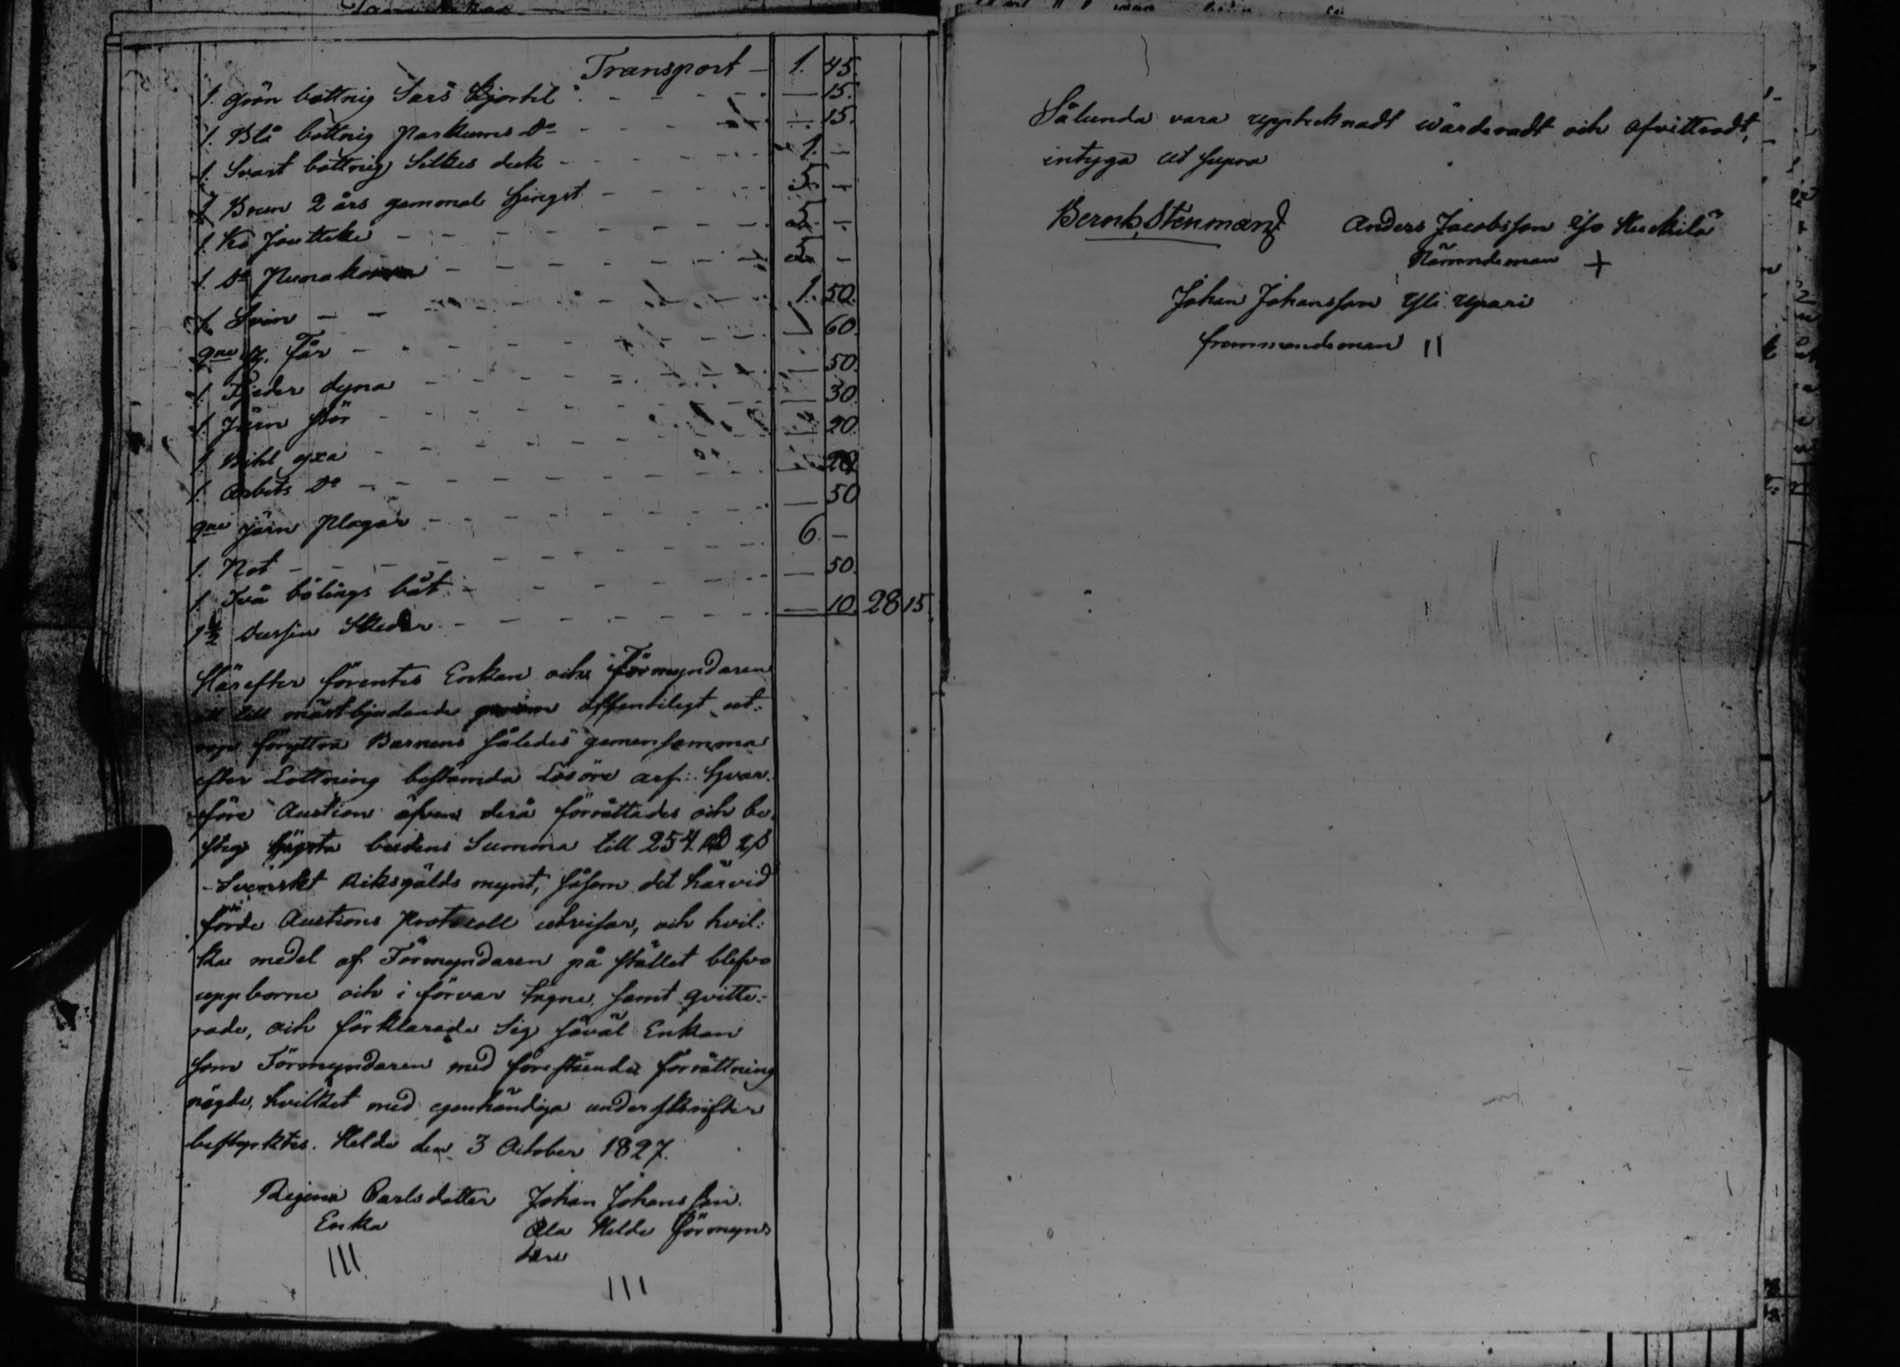 Transport — 1. 45.
1. Grön bottnig Sars Kjortel — 15.
1. Blå bottnig Parkums Do — 15.
1. Svart bottnig Silkes duk — 1. —
1 Brun 2 års gammal Hingst — 5. —
1. Ko Jouttike — 5. —
1. Do Muna — 5. —
Svin — 1. 50.
Får — 60.
1. Fjeder dyna — 50.
1. Järn stör — 30.
1. Bihl yxa — 20.
1. Arbets Do — 20
Järn Plogar — 50
1. Not — 6. —
1. Två bölings båt — 50.
1 1/2 dussin Skedar — 10. 28 15.
Härefter Enkan och Förmyndaren
till mästbjudande offentligt ut:
rop föryttra Barnens således gemensamma
efter Lottning bestämda Lösöre arf: hvar.
före Auction äfven derå förrättades och be
steg högsta budens Summa till 254 RD
Svenskt Riksgälds mynt, såsom det härvid
förde Auctions Protocoll utvisar, och hvil:
ka medel af Förmyndaren på stället blefvo
uppborne och i förvar tagne, samt qvitte:
rade, och förklarade Sig såväl Enkan
som Förmyndaren med förestående förrättning
nögde, hvilket med egenhändiga underskrifter
bestyrktes. Helde den 3 October 1827.
Regina Carlsdotter Johan Johansson
Enka Ala Helde förmyn
dare
III III
Sålunda vara upptecknadt wärderadt och afvittradt,
intyga Ut supra
Bernh. Stenman Anders Jacobsson
Nämndeman +
Johan Johansson Yli Ypari
Nämndeman II